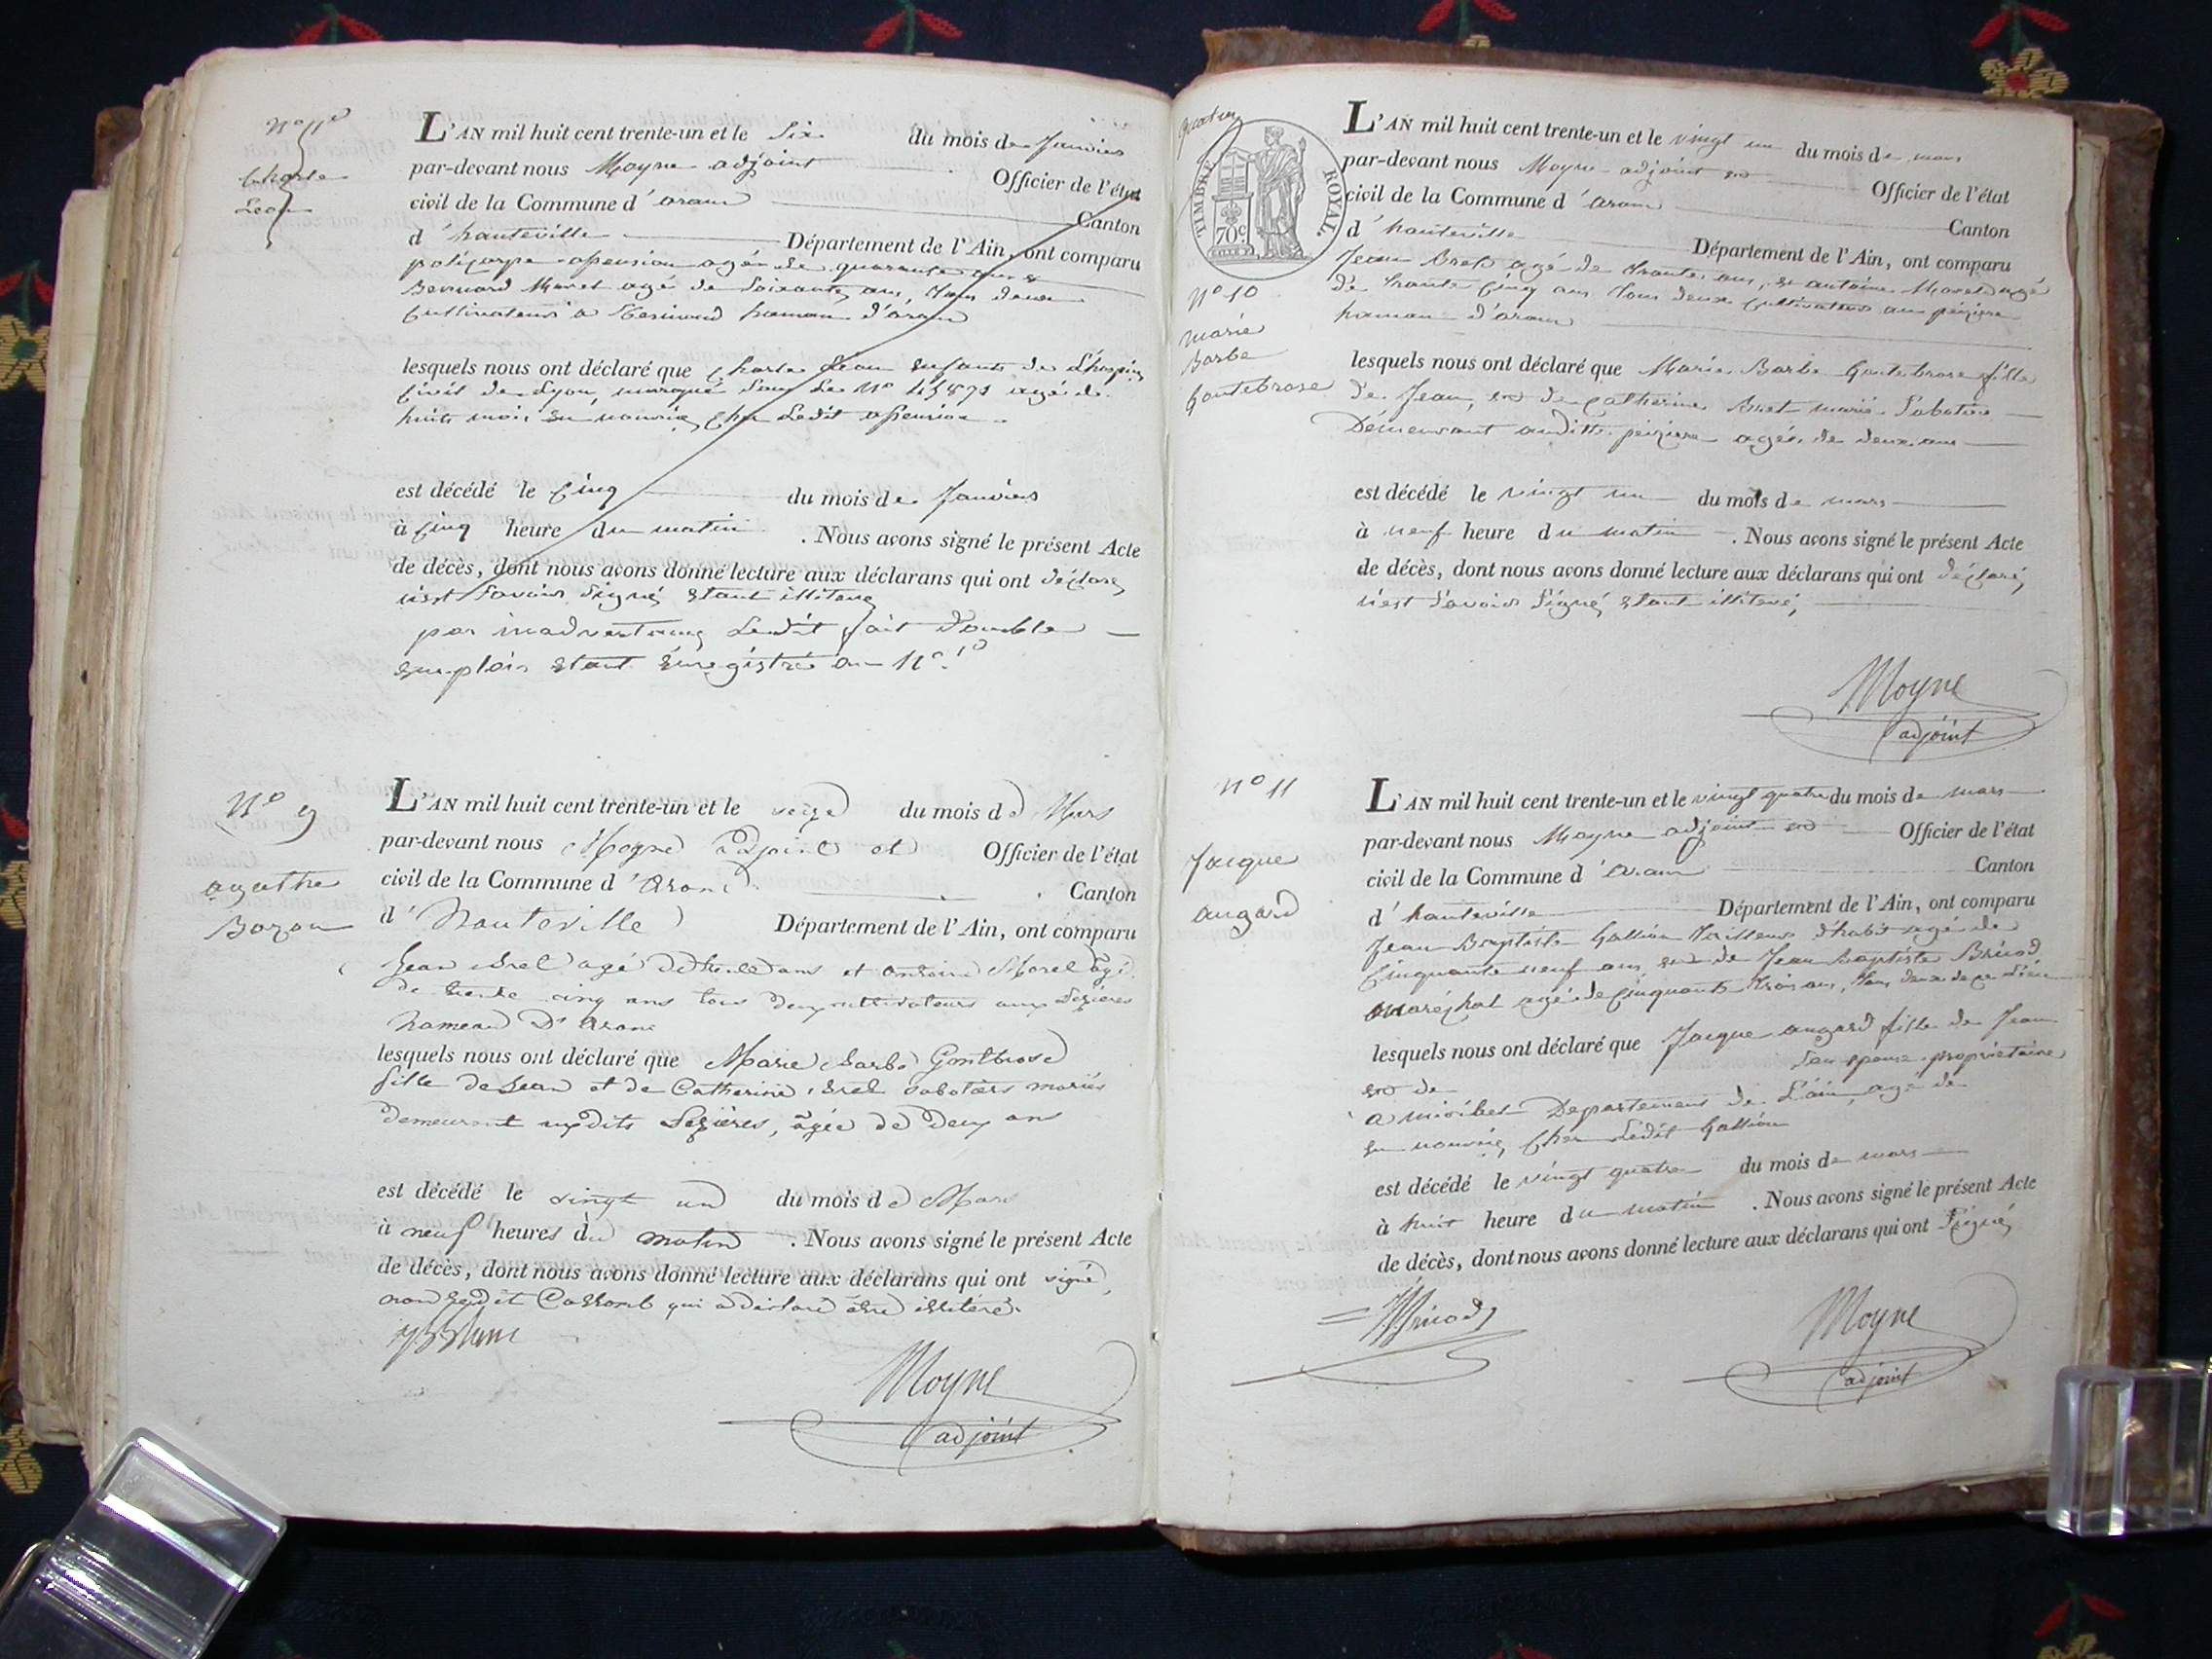 Charle
Leon
L'AN mil huit cent trente-un et le Six du mois de Janvier
par-devant nous Moyne adjoint Officier de l'état
civil de la Commune d'aranc Canton
d'hauteville Département de l'Ain, ont comparu
agé de quarante ans &
Bernard Moret agé de Soixante ans, tous deux
Cultivateurs a hamau d'aranc
lesquels nous ont déclaré que Charle Leon enfant de L'hospice
Civil de Lyon, marqué Sous Le N° agé de
huit mois en nourrice Chez Ledit
est décédé le Cinq du mois de Janvier
à Cinq heure du matin. Nous avons signé le présent Acte
de décès, dont nous avons donné lecture aux déclarans qui ont déclaré
n'est Savoir Signé Etant
par inadvertance Ledit fait double
emplois etant enregistré au N° 1er
N° 9
agathe
Bozon
L'AN mil huit cent trente-un et le seize du mois de Mars
par-devant nous Moyne adjoint et Officier de l'état
civil de la Commune d'Aranc Canton
d'hauteville Département de l'Ain, ont comparu
Jean Brel agé de trente ans et antoine Morel agé
de trente cinq ans tous deux cultivateurs aux
hameau D'Aranc
lesquels nous ont déclaré que Marie Barbe Gontbrose
fille de Jean et de Catherine Brel sabotiers mariés
demeurant auxdits, âgée de Deux ans
est décédé le vingt un du mois de Mars
à neuf heures du matin. Nous avons signé le présent Acte
de décès, dont nous avons donné lecture aux déclarans qui ont signé,
non ledit qui a déclaré être illitéré.
Moyne
adjoint
TIMBRE ROYAL.
70c
N° 10
marie
Barbe
Gontebrose
L'AN mil huit cent trente-un et le vingt un du mois de mars
par-devant nous Moyne adjoint et Officier de l'état
civil de la Commune d'aranc Canton
d'hauteville Département de l'Ain, ont comparu
Jean Brel agé de trante ans, et antoine Morel agé
de trante Cinq ans tous deux Cultivateurs au
hamau d'aranc
lesquels nous ont déclaré que Marie Barbe Gontebrose fille
de Jean, et de Catherine Brel marié Sabotier
Demeurant auditte agée de deux ans
est décédé le vingt un du mois de mars
à neuf heure du matin. Nous avons signé le présent Acte
de décès, dont nous avons donné lecture aux déclarans qui ont déclaré,
n'est Savoir Signé etant
Moyne
adjoint
N° 11
Jacque
augard
L'AN mil huit cent trente-un et le vingt quatre du mois de mars
par-devant nous Moyne adjoint et Officier de l'état
civil de la Commune d'aranc Canton
d'hauteville Département de l'Ain, ont comparu
Jean Baptiste Gallion tailleur d'habit agé de
Cinquante neuf ans et de Jean Baptiste Brucod
maréchal agé de Cinquante trois ans, tous deux de ce Lieu
lesquels nous ont déclaré que Jacque augard fille de Jean
et de Son epouse proprietaire
a miribel Departement de L'ain, agé de
en nourrice Chez Ledit Gallion
est décédé le vingt quatre du mois de mars
à huit heure du matin. Nous avons signé le présent Acte
de décès, dont nous avons donné lecture aux déclarans qui ont Signé
Moyne
adjoint